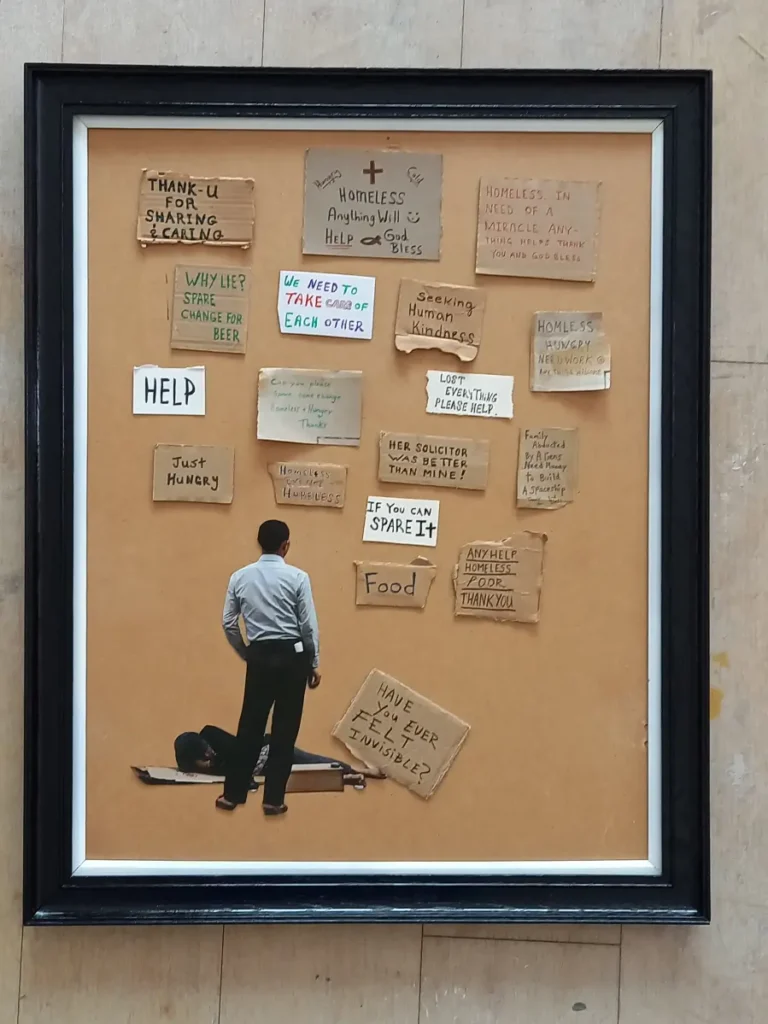 THANK-U
FOR
SHARING
& CARING
Hungry
Cold
HOMELESS
Anything Will
HELP God
BLESS
HOMELESS. IN
NEED OF A
MIRACLE ANY-
THING HELPS THANK
YOU AND GOD BLESS
WHY LIE?
SPARE
CHANGE FOR
BEER
WE NEED TO
TAKE CARE OF
EACH OTHER
Seeking
Human
Kindness
HOMLESS
HUNGRY
NEED WORK
HELP
Can you please
Spare some change
Homeless + Hungry
Thanks
LOST
EVERYTHING
PLEASE HELP.
Just
HUNGRY
HOMELESS
HER SOLICITOR
WAS BETTER
THAN MINE!
Family
Abducted
By Aliens
Need Money
to Build
A Spaceship
IF YOU CAN
SPARE It
Food
ANY HELP
HOMELESS
POOR
THANK YOU
HAVE
You EVER
FELT
INVISIBLE?